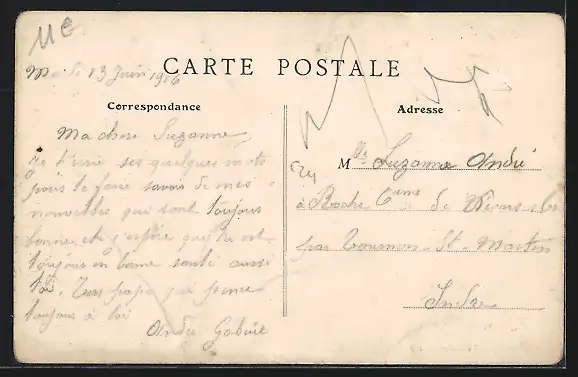 Mardi 13 Juin 1916
CARTE POSTALE
Correspondance
Adresse
Ma chère Suzanne
je t'écrie ses quelques mots
pour te faire savoir de mes
nouvelles qui sont toujours
bonne et j'espère que tu est
toujours en bonne santé aussi
toi. Ton papa qui pense
toujours à toi
André Gabriel
Mlle Suzanne André
à Roche Cne de
par Tournon-St-Martin
Indre